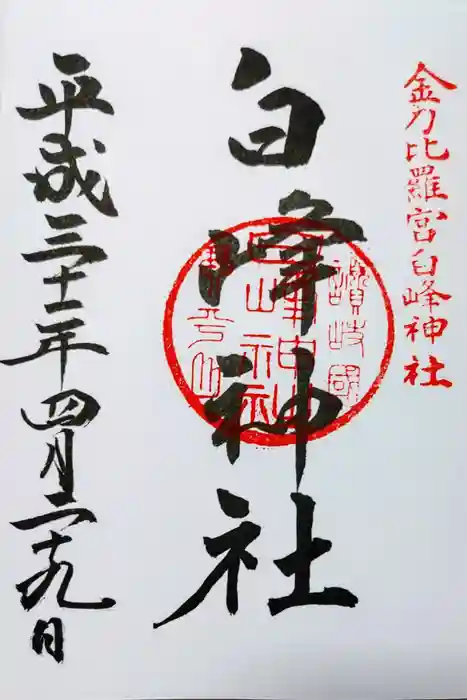 金刀比羅宮白峰神社
白峰神社
讃岐國
白峰神社
琴平山
平成三十一年四月二十九日